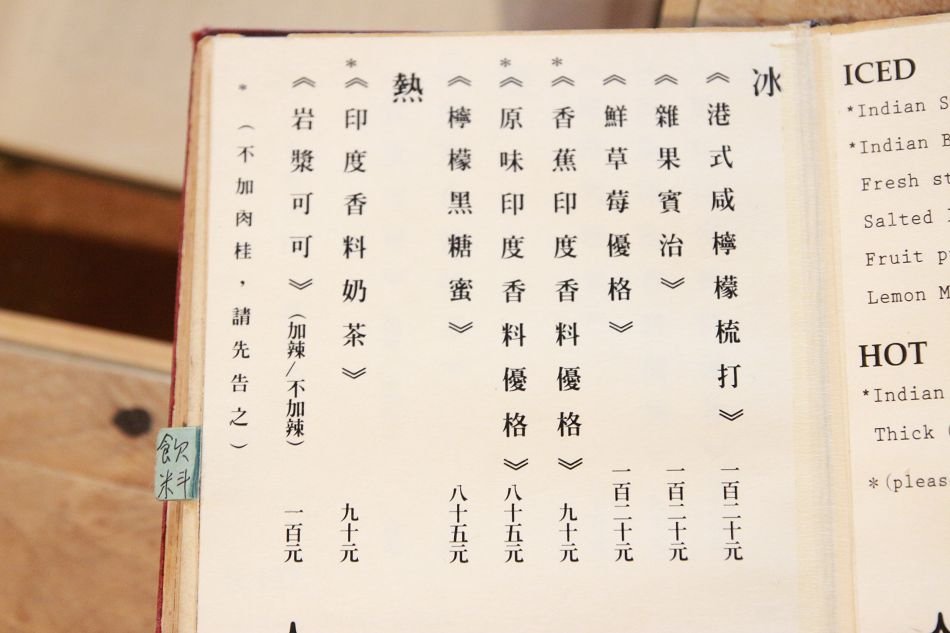 冰
《港式咸檸檬梳打》 一百二十元
《雜果賓治》 一百二十元
《鮮草莓優格》 一百二十元
*《香蕉印度香料優格》 九十元
*《原味印度香料優格》 八十五元
《檸檬黑糖蜜》 八十五元
熱
*《印度香料奶茶》 九十元
《岩漿可可》(加辣/不加辣) 一百元
*(不加肉桂，請先告之)
飲料
ICED
*Indian
*Indian
Fresh
Salted
Fruit
Lemon
HOT
*Indian
Thick